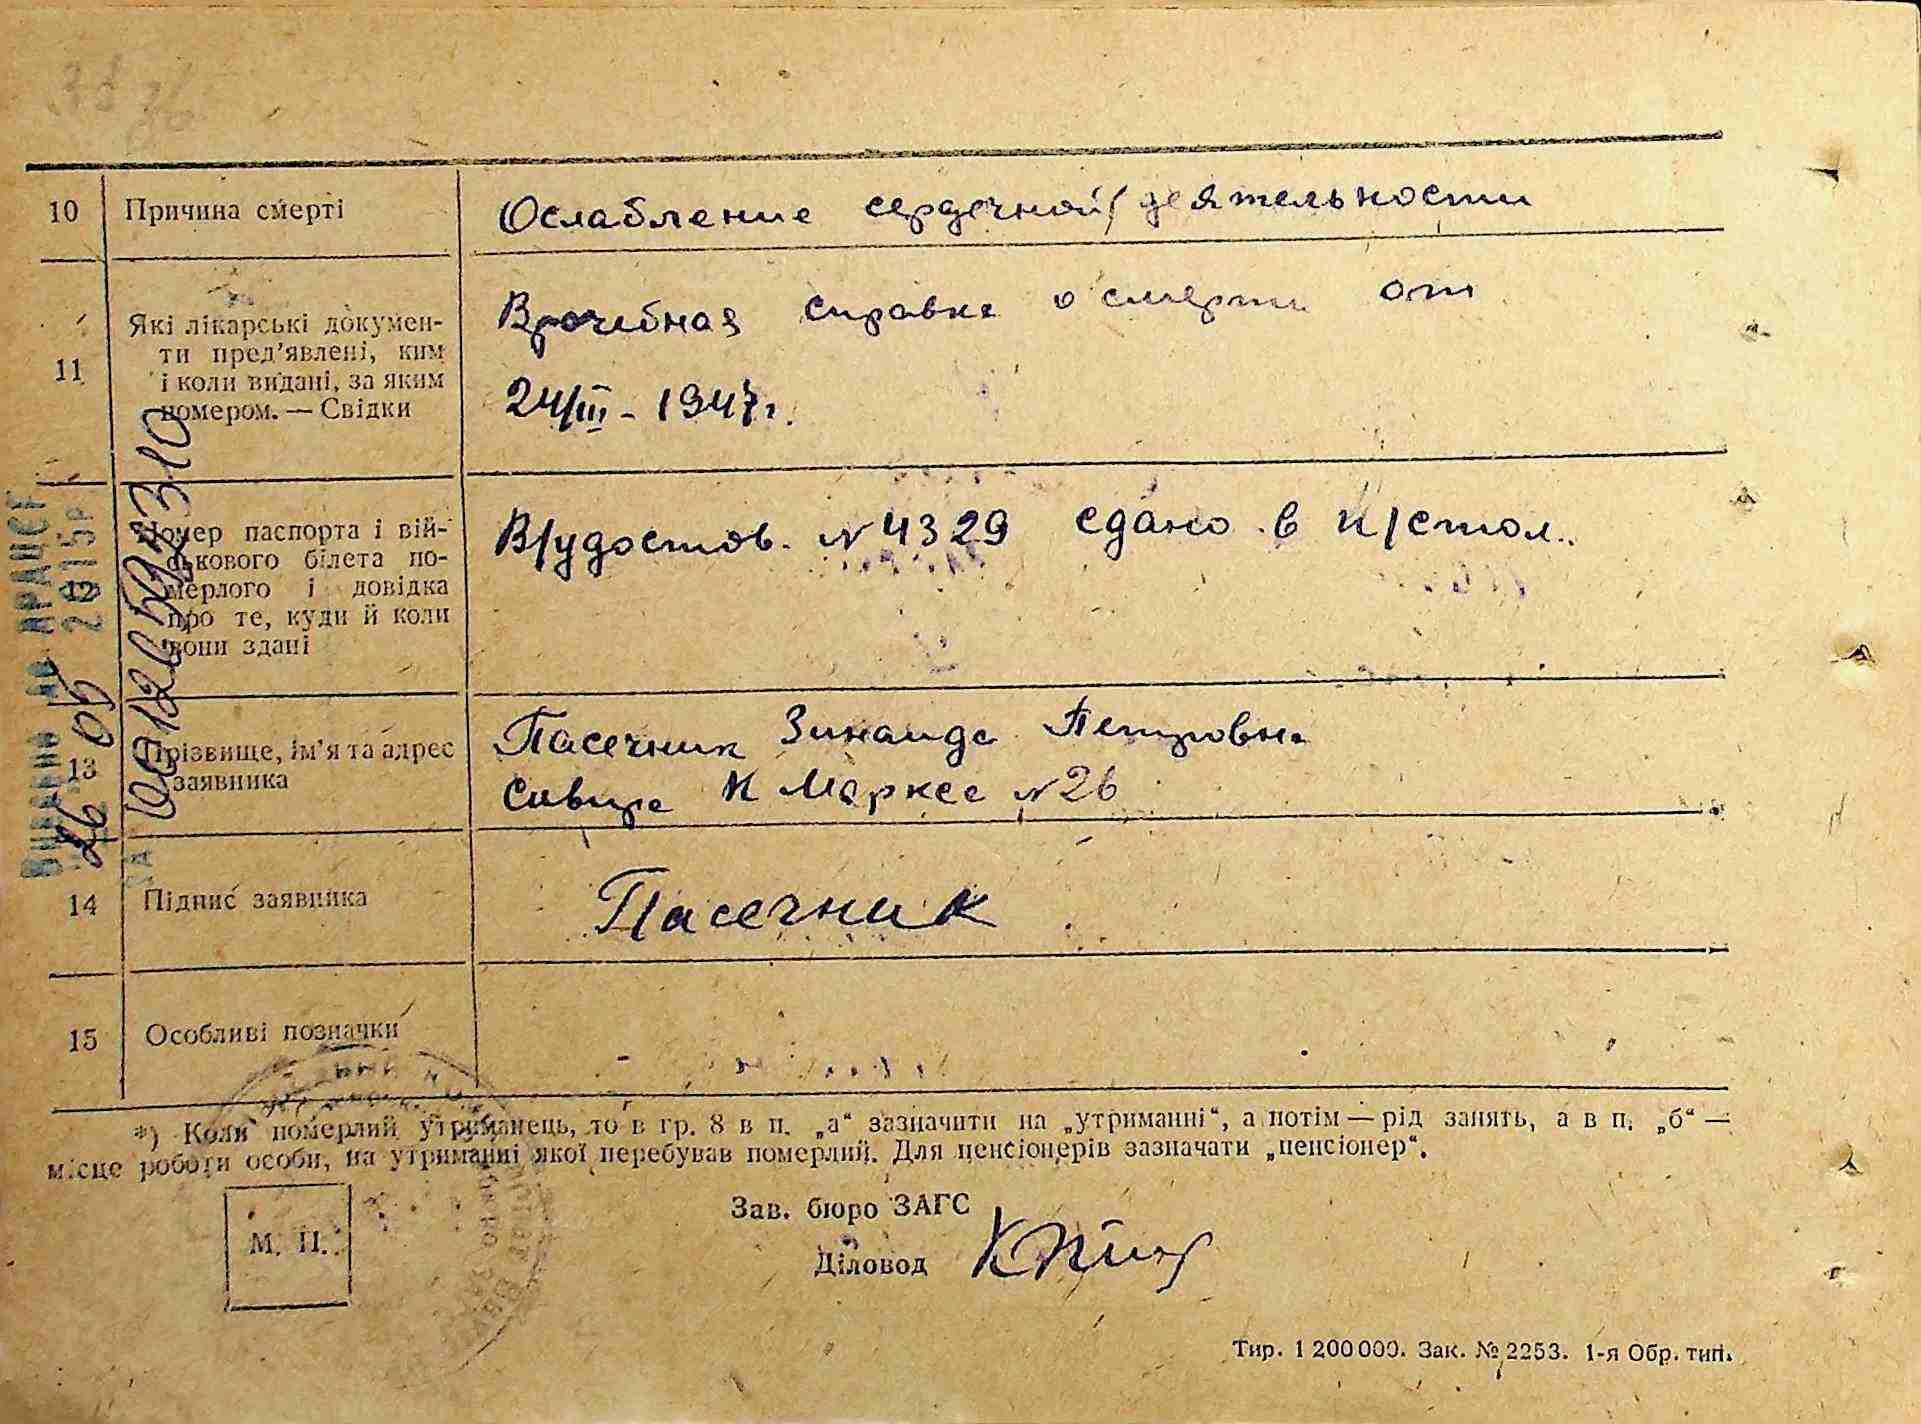 10 Причина смерті Ослабление сердечной деятельности
11 Які лікарські докумен-
ти пред’явлені, ким
і коли видані, за яким
номером. — Свідки
Врочебная справка о смерти от
24/III - 1947г.
12 Номер паспорта і вій-
ськового білета по-
мерлого і довідка
про те, куди й коли
вони здані
В/удостов. № 4329 сдано в п/стол.
13 Прізвище, ім’я та адрес
заявника
Пасечник Зинаида Петровна
К Маркса № 26
14 Підпис заявника Пасечник
15 Особливі позначки
*) Коли померлий утриманець, то в гр. 8 в п. „а“ зазначити на „утриманні“, а потім — рід занять, а в п. „б“ —
місце роботи особи, на утриманні якої перебував померлий. Для пенсіонерів зазначати „пенсіонер“.
М. П.
Зав. бюро ЗАГС
Діловод
Тир. 1 200 000. Зак. № 2253. 1-я Обр. тип.